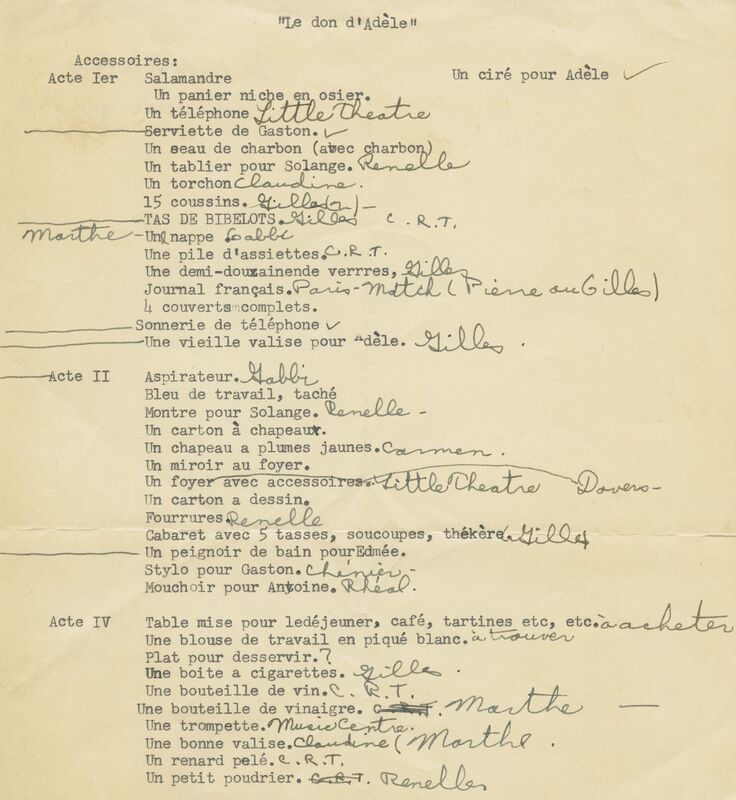 "Le don d'Adèle"
Accessoires:
Acte Ier Salamandre Un ciré pour Adèle ✓
Un panier niche en osier.
Un téléphone Little Theatre
Serviette de Gaston. ✓
Un seau de charbon (avec charbon)
Un tablier pour Solange. Renelle
Un torchon Claudine.
15 coussins. Gilles(2)-
TAS DE BIBELOTS. Gilles C.R.T.
Marthe - Une nappe Gabbi
Une pile d'assiettes. C.R.T.
Une demi-douzainende verrres, Gilles
Journal français. Paris-Match (Pierre ou Gilles)
4 couverts complets.
Sonnerie de téléphone ✓
Une vieille valise pour Adèle. Gilles.
Acte II Aspirateur. Gabbi
Bleu de travail, taché
Montre pour Solange. Renelle -
Un carton à chapeaux.
Un chapeau a plumes jaunes. Carmen.
Un miroir au foyer.
Un foyer avec accessoires. Little Theatre Davers-
Un carton a dessin.
Fourrures. Renelle
Cabaret avec 5 tasses, soucoupes, thékère. Gilles
Un peignoir de bain pourEdmée.
Stylo pour Gaston. Chénier -
Mouchoir pour Antoine. Rhéal.
Acte IV Table mise pour ledéjeuner, café, tartines etc, etc. à acheter
Une blouse de travail en piqué blanc. à trouver
Plat pour desservir. ?
Une boite a cigarettes. Gilles.
Une bouteille de vin. C.R.T.
Une bouteille de vinaigre. C.R.T. Marthe -
Une trompette. Music Centre.
Une bonne valise. Claudine (Marthe.
Un renard pelé. C.R.T.
Un petit poudrier. C.R.T. Renelles